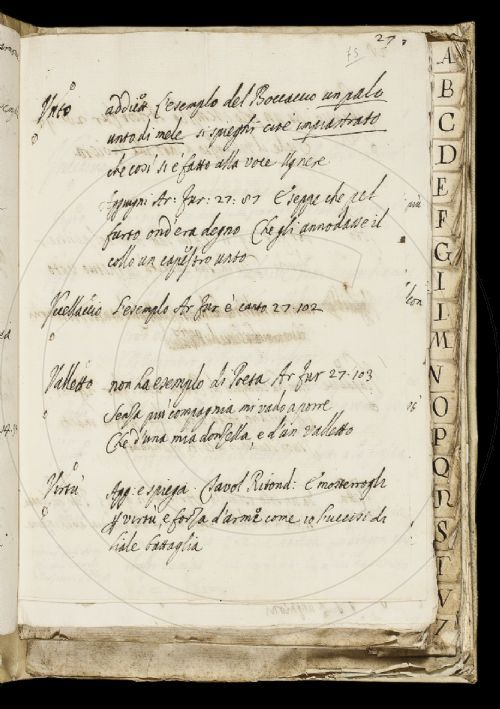 27
75
Unto addur L'esempio del Boccaccio un palo
unto di mele si spieghi cioè impiastrato
che così si è fatto alla voce Ugnere
Aggiugni Ar: Fur: 27: 87 E seppe che pel
furto ond'era degno Che gli annodasse il
collo un capestro unto
Uccellaccio L'esempio Ar Fur è canto 27.102
Valletto non ha esempio di Poeta Ar Fur 27.103
Senza più compagnia mi vado a porre
Che d'una mia donzella, e d'un valletto
Virtù Agg: e spiega Tavol Ritond: E mosterrogli
virtù, e forza d'arme come io huccisi di
leale battaglia
A
B
C
D
E
F
G
I
L
M
N
O
P
Q
R
S
T
V
Z